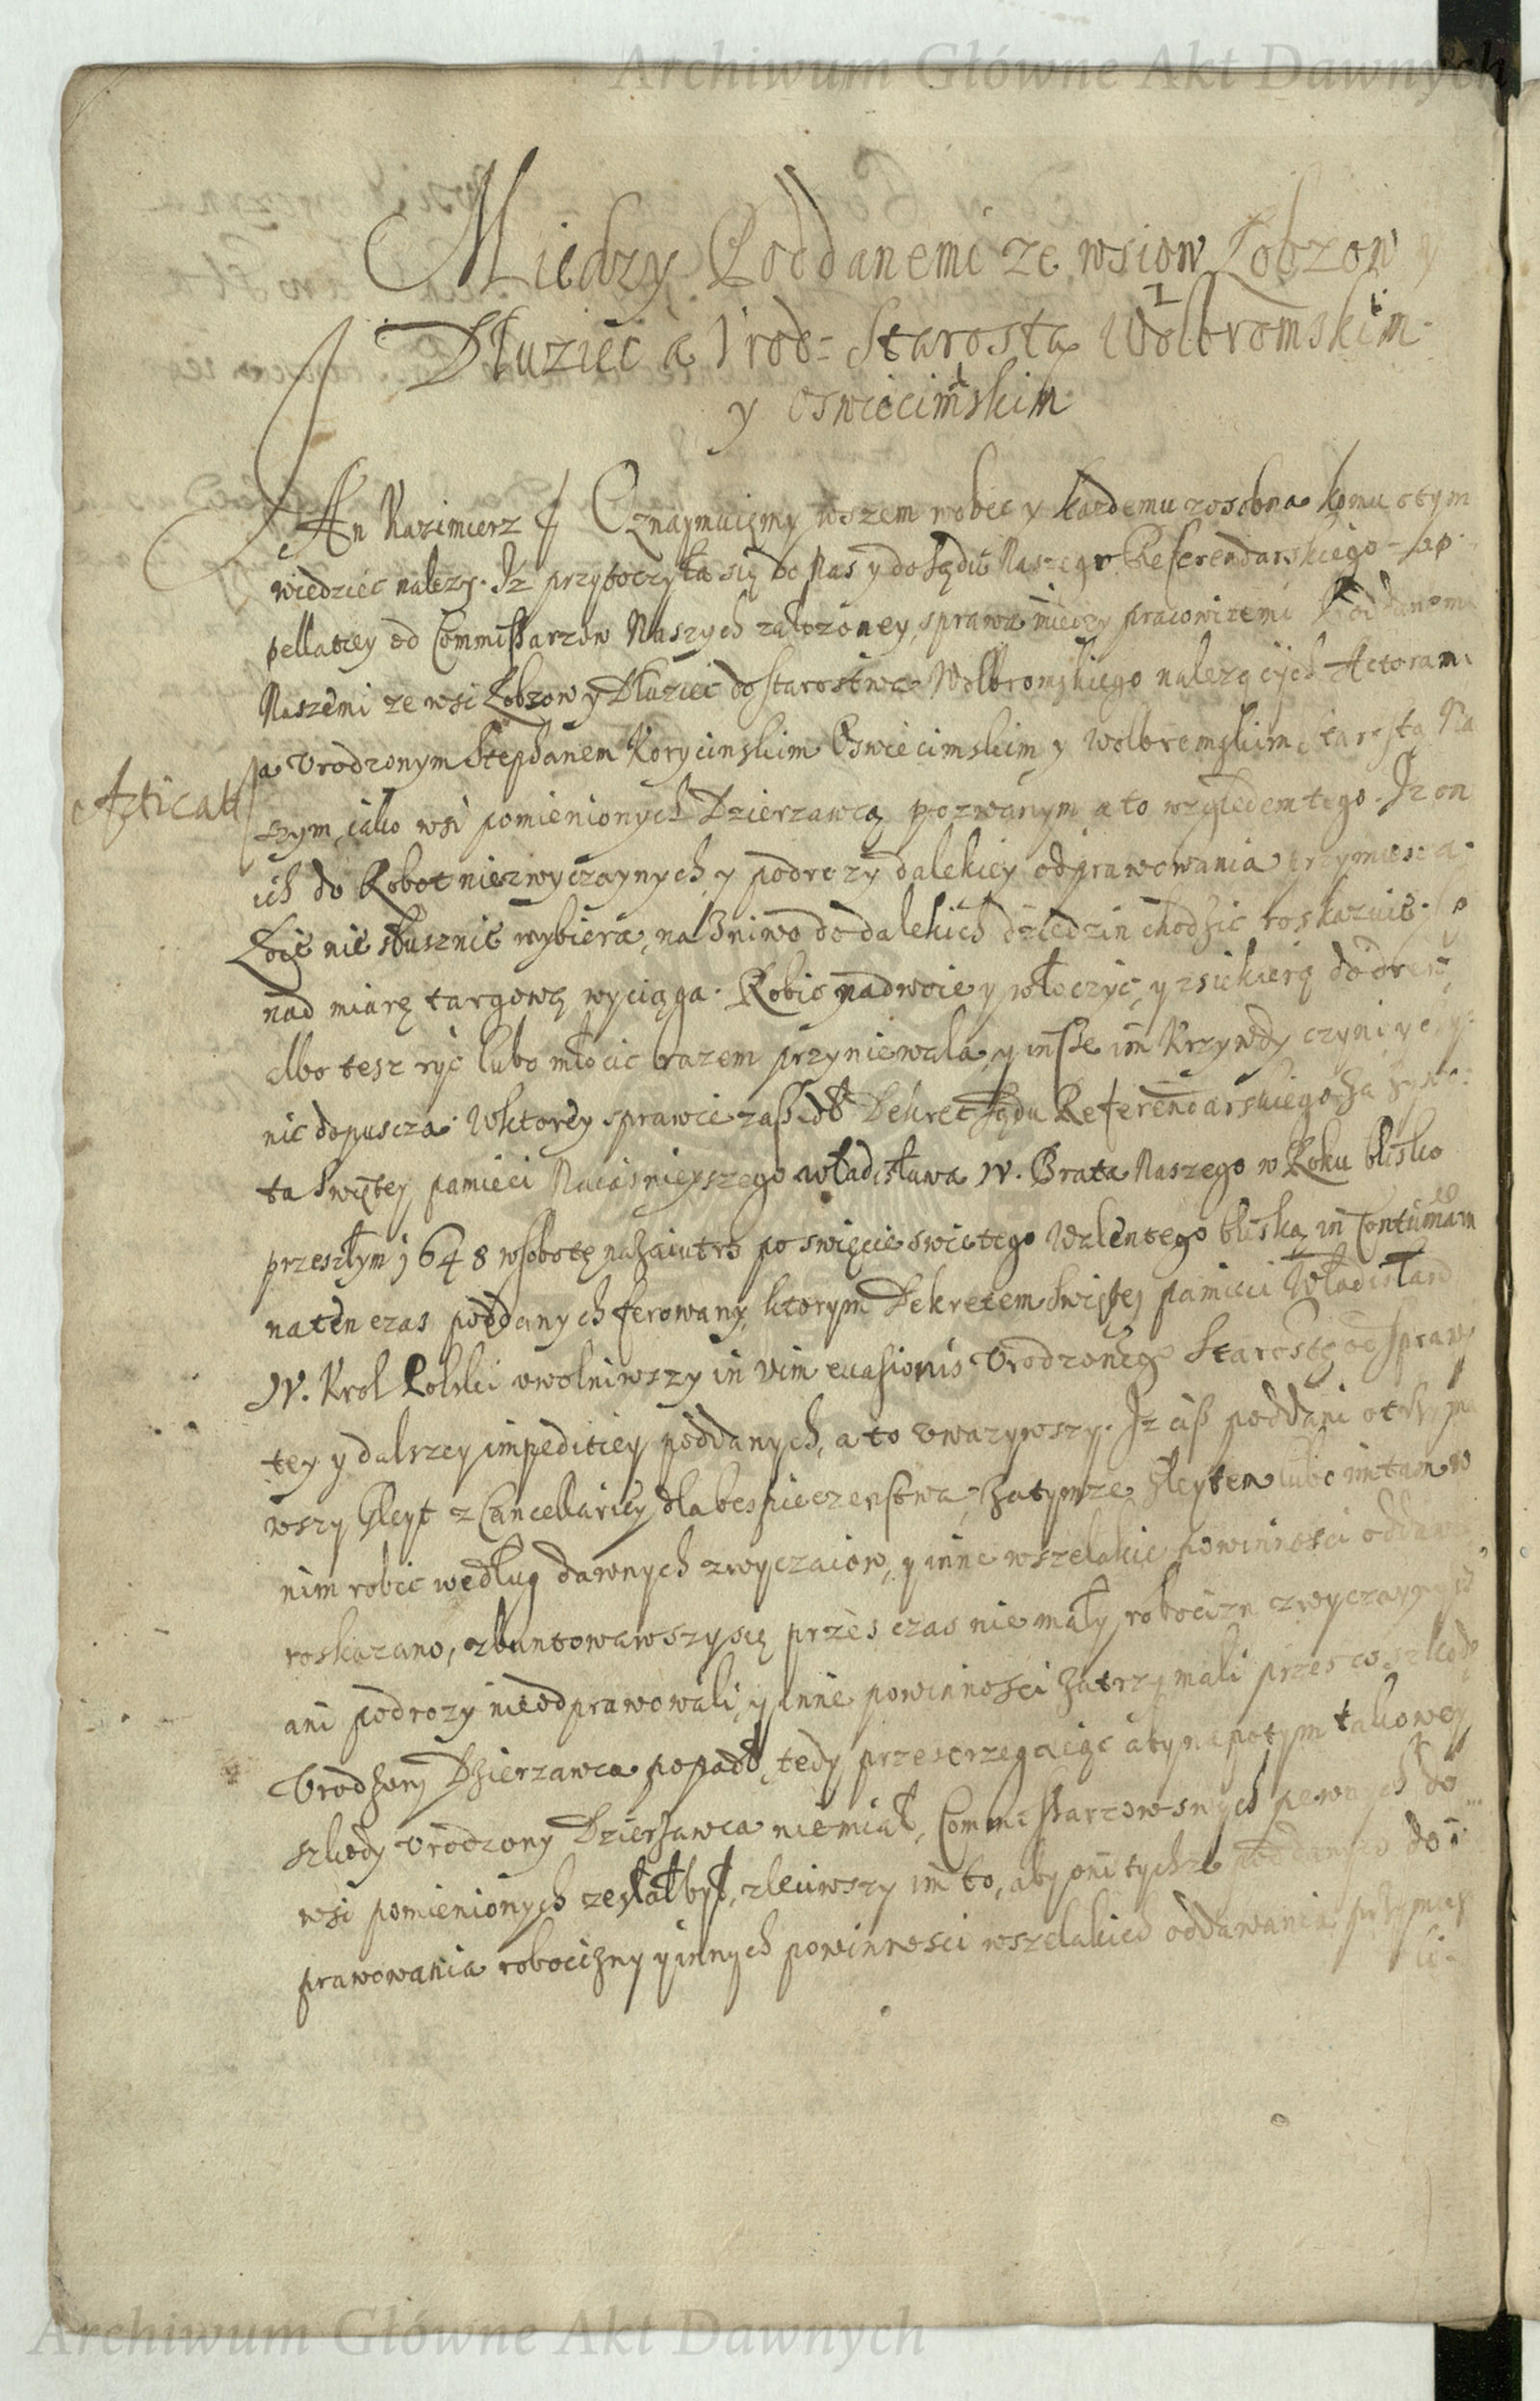 Archiwum Główne Akt Dawnych
Miedzy Poddanemi ze wsiow Lobzow y
Dłuziec a Vrod= Starostą Wolbromskim
y Oswiecimskim
JAn Kazimierz Oznaymuięmy wszem wobec y kazdemu zosobna komu otym
wiedziec nalezy. Iz przytoczyła się do Nas y do Sądu Naszego Referendarskiego = Ap
pellatiey od Commissarzow Naszych załozoney, sprawa między pracowitemi Poddanemi
Naszemi ze wsi Lobzow y Dłuziec do starostwa Wolbromskiego nalezących Actorami
a Vrodzonym Stephanem Korycinskim Oswiecimskim y Wolbromskim Starostą Na
szym, iako wsi pomienionych Dzierzawcą pozwanym a to względem tego. Iz on
Articuli
ich do Robot niezwyczaynych y podrozy dalekiey odprawowania przymusza.
nie słusznie wybiera, na Zniwo do dalekich dziedzin chodzic roskazuie. p
nad miarę targową wyciąga. Robic nadwoie y włoczyc, y z siekierą do drew
albo tesz ryc lubo młocic razem przyniewala, y insze im Krzywdy czyni y
nic dopuscza. Wktorey sprawie zaszedł Dekret Sądu Referendarskiego Za
ta Swiętey pamieci Naiasnieyszego Władisława IV. Brata Naszego w Roku blisko
przeszłym 1648 w Sobotę nazaiutrz po swięcie swietego Walentego bliską in Contumaciam
na ten czas poddanych ferowany, ktorym Dekretem Swiętey pamieci Władisław
IV. Krol Polski vwolniwszy in vim euasionis Vrodzonego Starostę od sprawy
tey y dalszey impeditiey poddanych, a to vwazywszy. Iz ciż poddani otrzyma
wszy Gleyt z Cancellariey dla bespieczenstwa, Zatymze Gleytem lubo im tam w
nim robic według dawnych zwyczaiow, y inne wszelakie powinnosci oddawac
roskazano, zbuntowawszy się przes czas nie mały robocizn zwyczaynych
ani podrozy nieodprawowali, y inne powinnosci Zatrzymali przes co szkodę
Vrodzony Dzierzawca popadł, tedy przestrzegaiąc aby napotym takowey
szkody Vrodzony Dzierzawca niemiał, Commissarzow Swych pewnych do
wsi pomienionych zesłał był, zleciwszy im to, aby oni tychze poddanych do
prawowania robocizny y innych powinnosci wszelakich oddawania przymusi
li=
Archiwum Główne Akt Dawnych